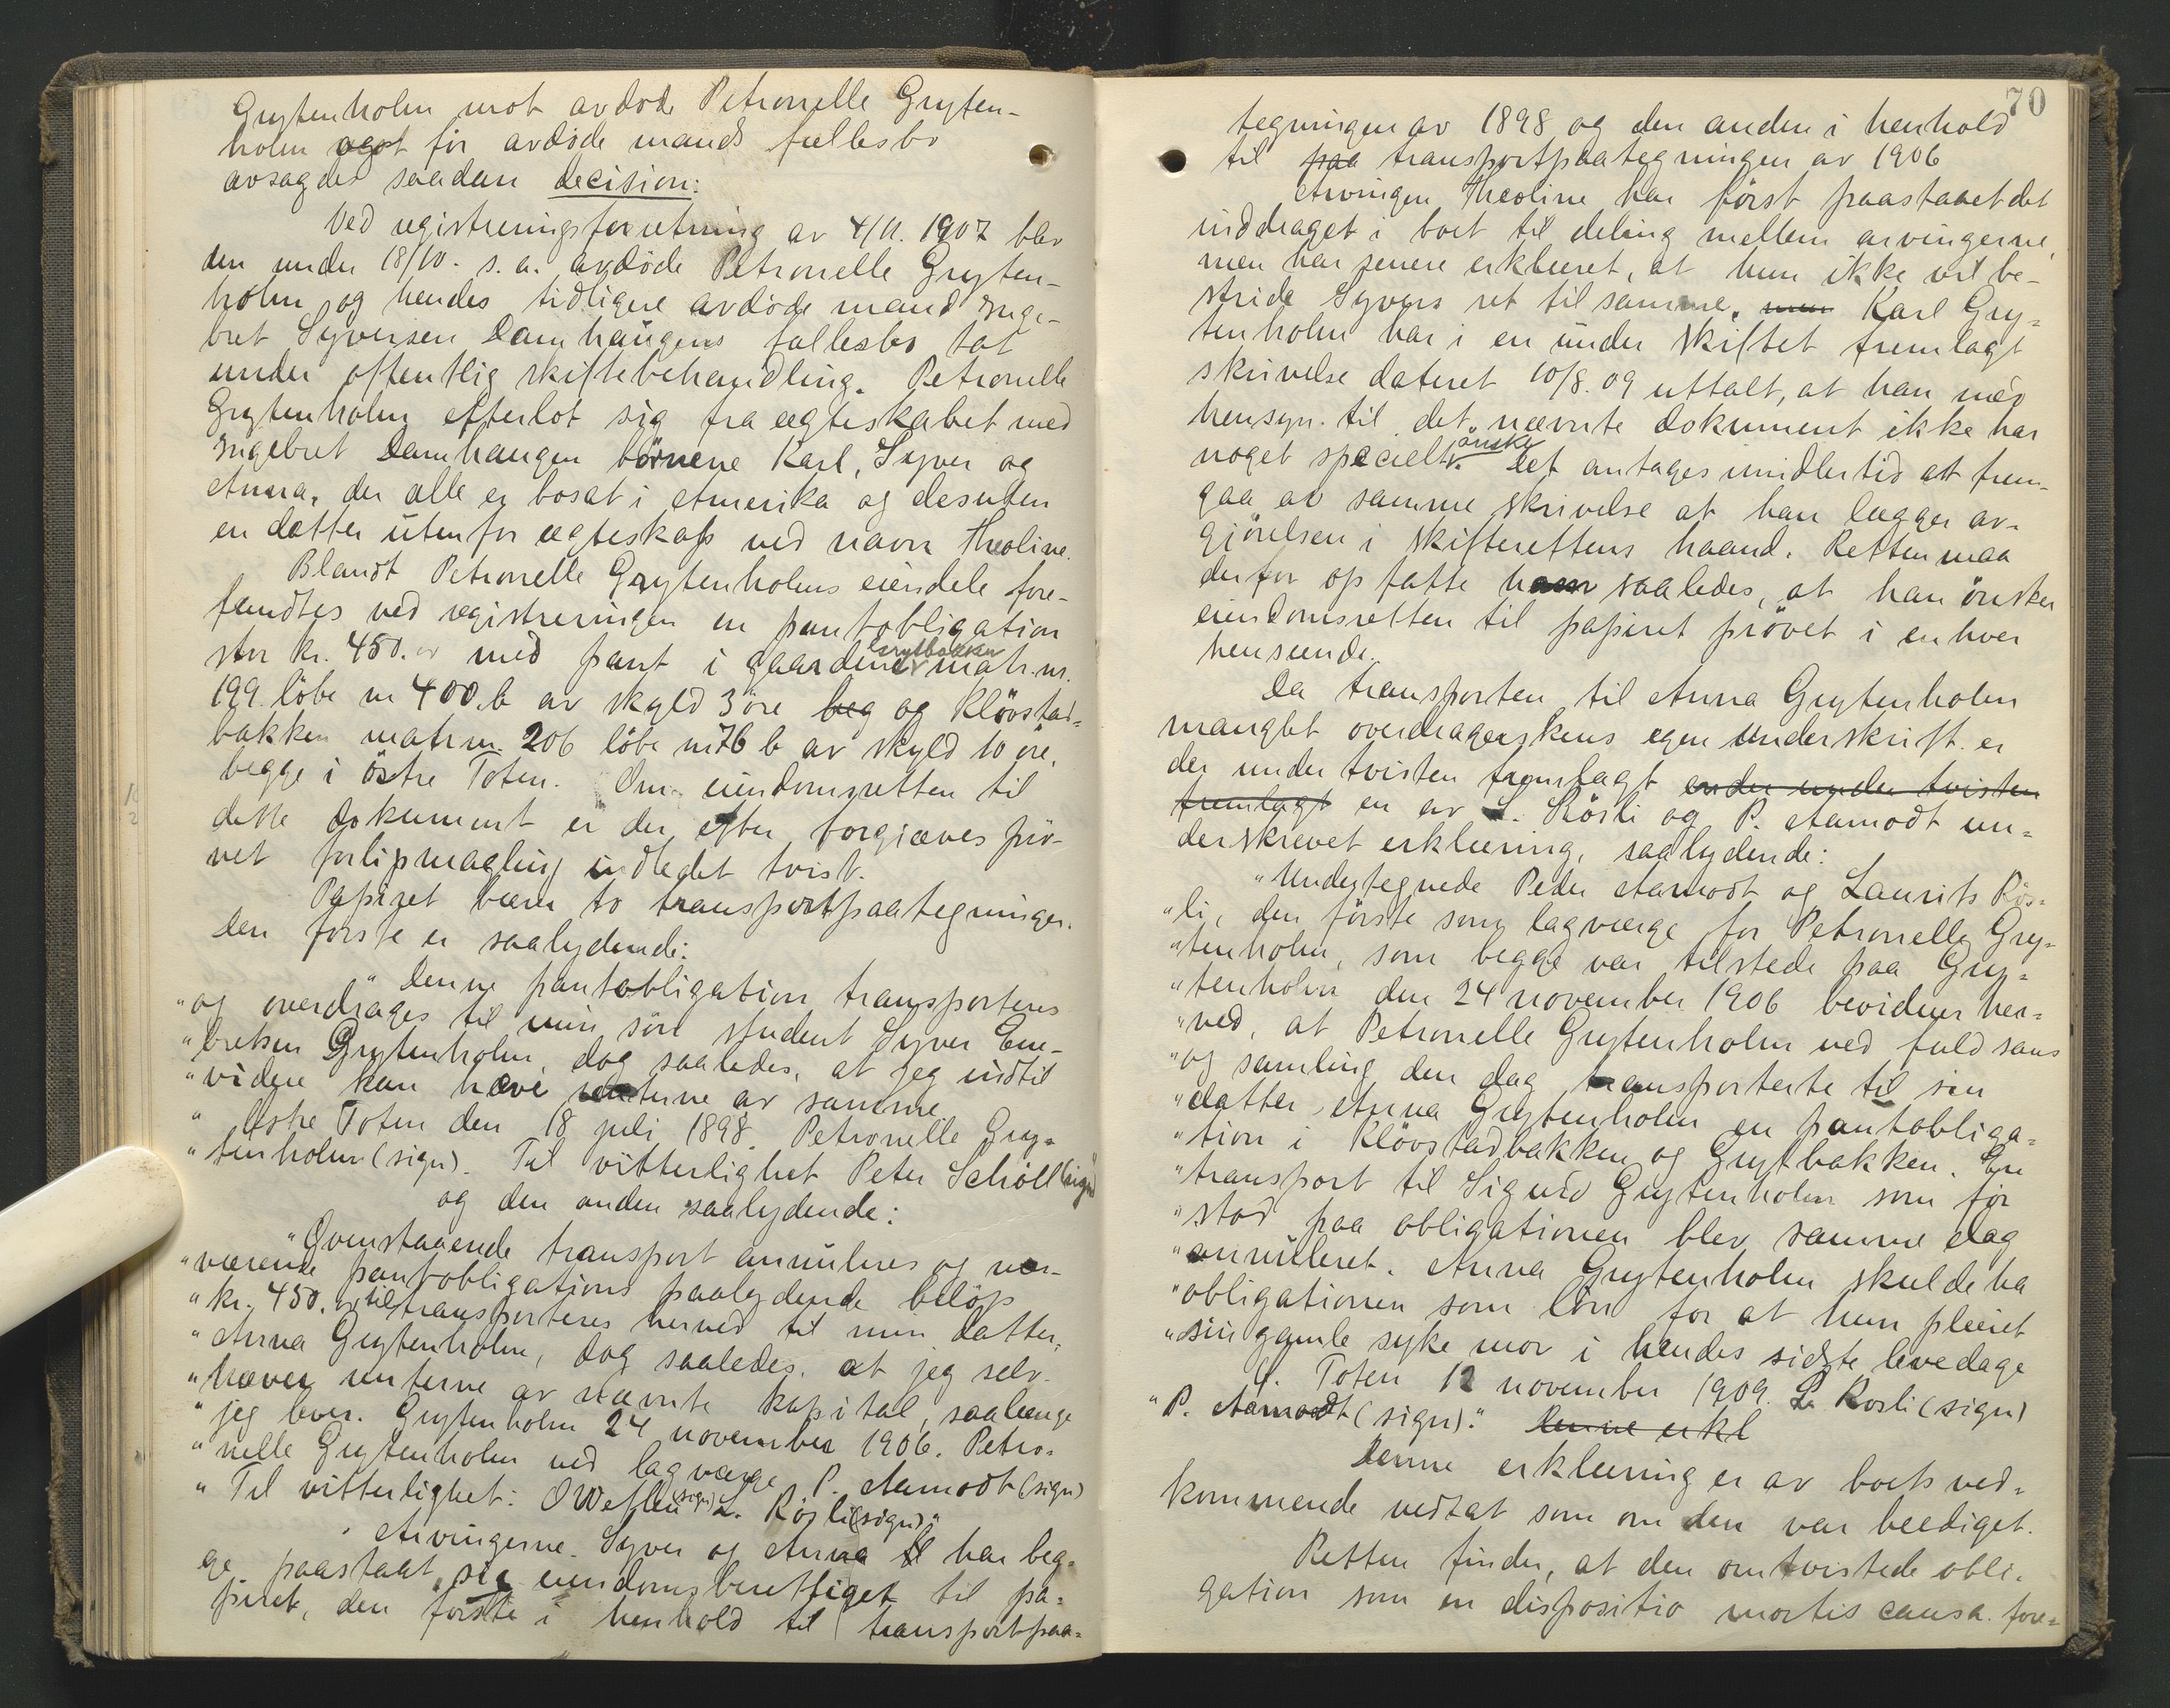 Grytenholm mot avdøde Petronelle Gryten-
holm og for avdøde mands fællesbo
avsagdes saadan decision:
Ved registreringsforretning av 4/11. 1907 blev
den under 18/10. s. a. avdøde Petronelle Gryten-
holm og hendes tidligere avdøde mand Inge-
bret Syversen Damhaugens fællesbo tat
under offentlig skiftebehandling. Petronelle
Grytenholm efterlot sig fra ægteskabet med
Ingebret Damhaugen børnene Karl, Syver og
Anna, der alle er bosat i Amerika og desuden
en datter utenfor ægteskap ved navn Theoline.
Blandt Petronelle Grytenholms eiendele fore-
fandtes ved registreringen en pantobligation
stor kr. 450.00 med pant i gaardene Grytbakken matr. nr.
199 løbe nr 400.b av skyld 3 øre beg og Kløvstad-
bakken matr nr. 206 løbe nr 76 b av skyld 10 øre,
begge i østre Toten. Om eiendomsretten til
dette dokument er der efter forgjæves prø-
vet forliksmægling indledet tvist.
Papiret bærer to transportpaategninger.
Den første er saalydende:
"Denne pantobligation transporteres
"og overdrages til min søn student Syver Em-
"bretsen Grytenholm, dog saaledes, at jeg indtil
"videre kan hæve renterne av samme
"Østre Toten den 18 juli 1898. Petronelle Gry-
"tenholm (sign). Til vitterlighet Peter Schöll (sign)"
og den anden saalydende:
"Ovenstaaende transport annuleres og nær-
"værende pantobligations paalydende beløp
"kr. 450.00 tiltransporteres herved til min datter,
"Anna Grytenholm, dog saaledes, at jeg selv
"hæver renterne av nævnte kapital, saalænge
"jeg lever. Grytenholm 24 november 1906. Petro-
"nelle Grytenholm ved lagværge P. Aamodt (sign)
"Til vitterlighet: O Weflen (sign) L. Røsli (sign)"
Arvingerne Syver og Anna har beg-
ge paastaat sig eiendomsberettiget til pa-
piret, den første i henhold til transportpaa-
70
tegningen av 1898 og den anden i henhold
til paa transportpaategningen av 1906
Arvingen Theoline har først paastaaet det
inddraget i boet til deling mellem arvingerne,
men har senere erklæret, at hun ikke vil be-
stride Syvers ret til samme, men Karl Gry-
tenholm har i en under skiftet fremlagt
skrivelse dateret 10/8. 09 uttalt, at han med
hensyn til det nævnte dokument ikke har
noget specielt ønske. Det antages imidlertid at frem-
gaa av samme skrivelse at han lægger av-
gjørelsen i skifterettens haand. Retten maa
derfor opfatte ham saaledes, at han ønsker
eiendomsretten til papiret prøvet i enhver
henseende.
Da transporten til Anna Grytenholm
manglet overdragerskens egen underskrift er
der under tvisten fremlagt en der under tvisten
fremlagt en av L. Røsli og P. Aamodt un-
derskrevet erklæring, saalydende:
"Undertegnede Peder Aamodt og Laurits Røs-
"li, den første som lagværge for Petronelle Gry-
"tenholm, som begge var tilstede paa Gry-
"tenholm den 24 november 1906 bevidner her-
"ved, at Petronelle Grytenholm ved fuld sans
"og samling den dag transporterte til sin
"datter Anna Grytenholm en pantobliga-
"tion i Kløvstadbakken og Grytbakken. En
"transport til Sigurd Grytenholm som før
"stod paa obligationen blev samme dag
"annulleret. Anna Grytenholm skulde ha
"obligationen som løn for at hun pleiet
"sin gamle syke mor i hendes sidste levedage
Ø. Toten 12 november 1909. L. Rosli (sign)
"P. Aamodt (sign)." Denne erkl
Denne erklæring er av boets ved-
kommende vedtat som om den var beediget.
Retten finder, at den omtvistede obli-
gation som en dispositio mortis causa fore-